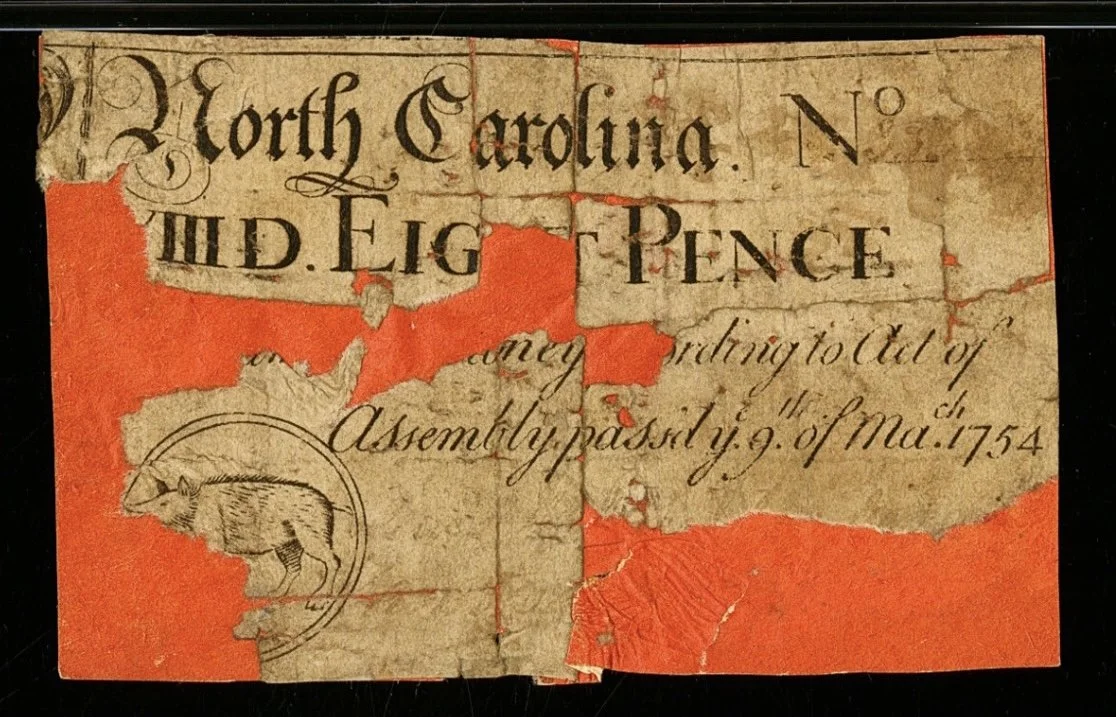 North Carolina. Nº
IIID. EIG T PENCE
ording to Act of
Assembly, pass'd yᵉ. 9ᵗʰ. of Maᶜʰ. 1754